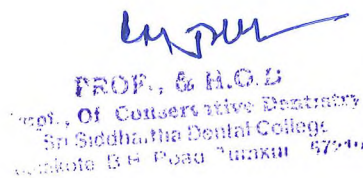 PROF., & H.O.D
Dept., Of Conservative Dentistry
Sri Siddhartha Dental College
B H Road